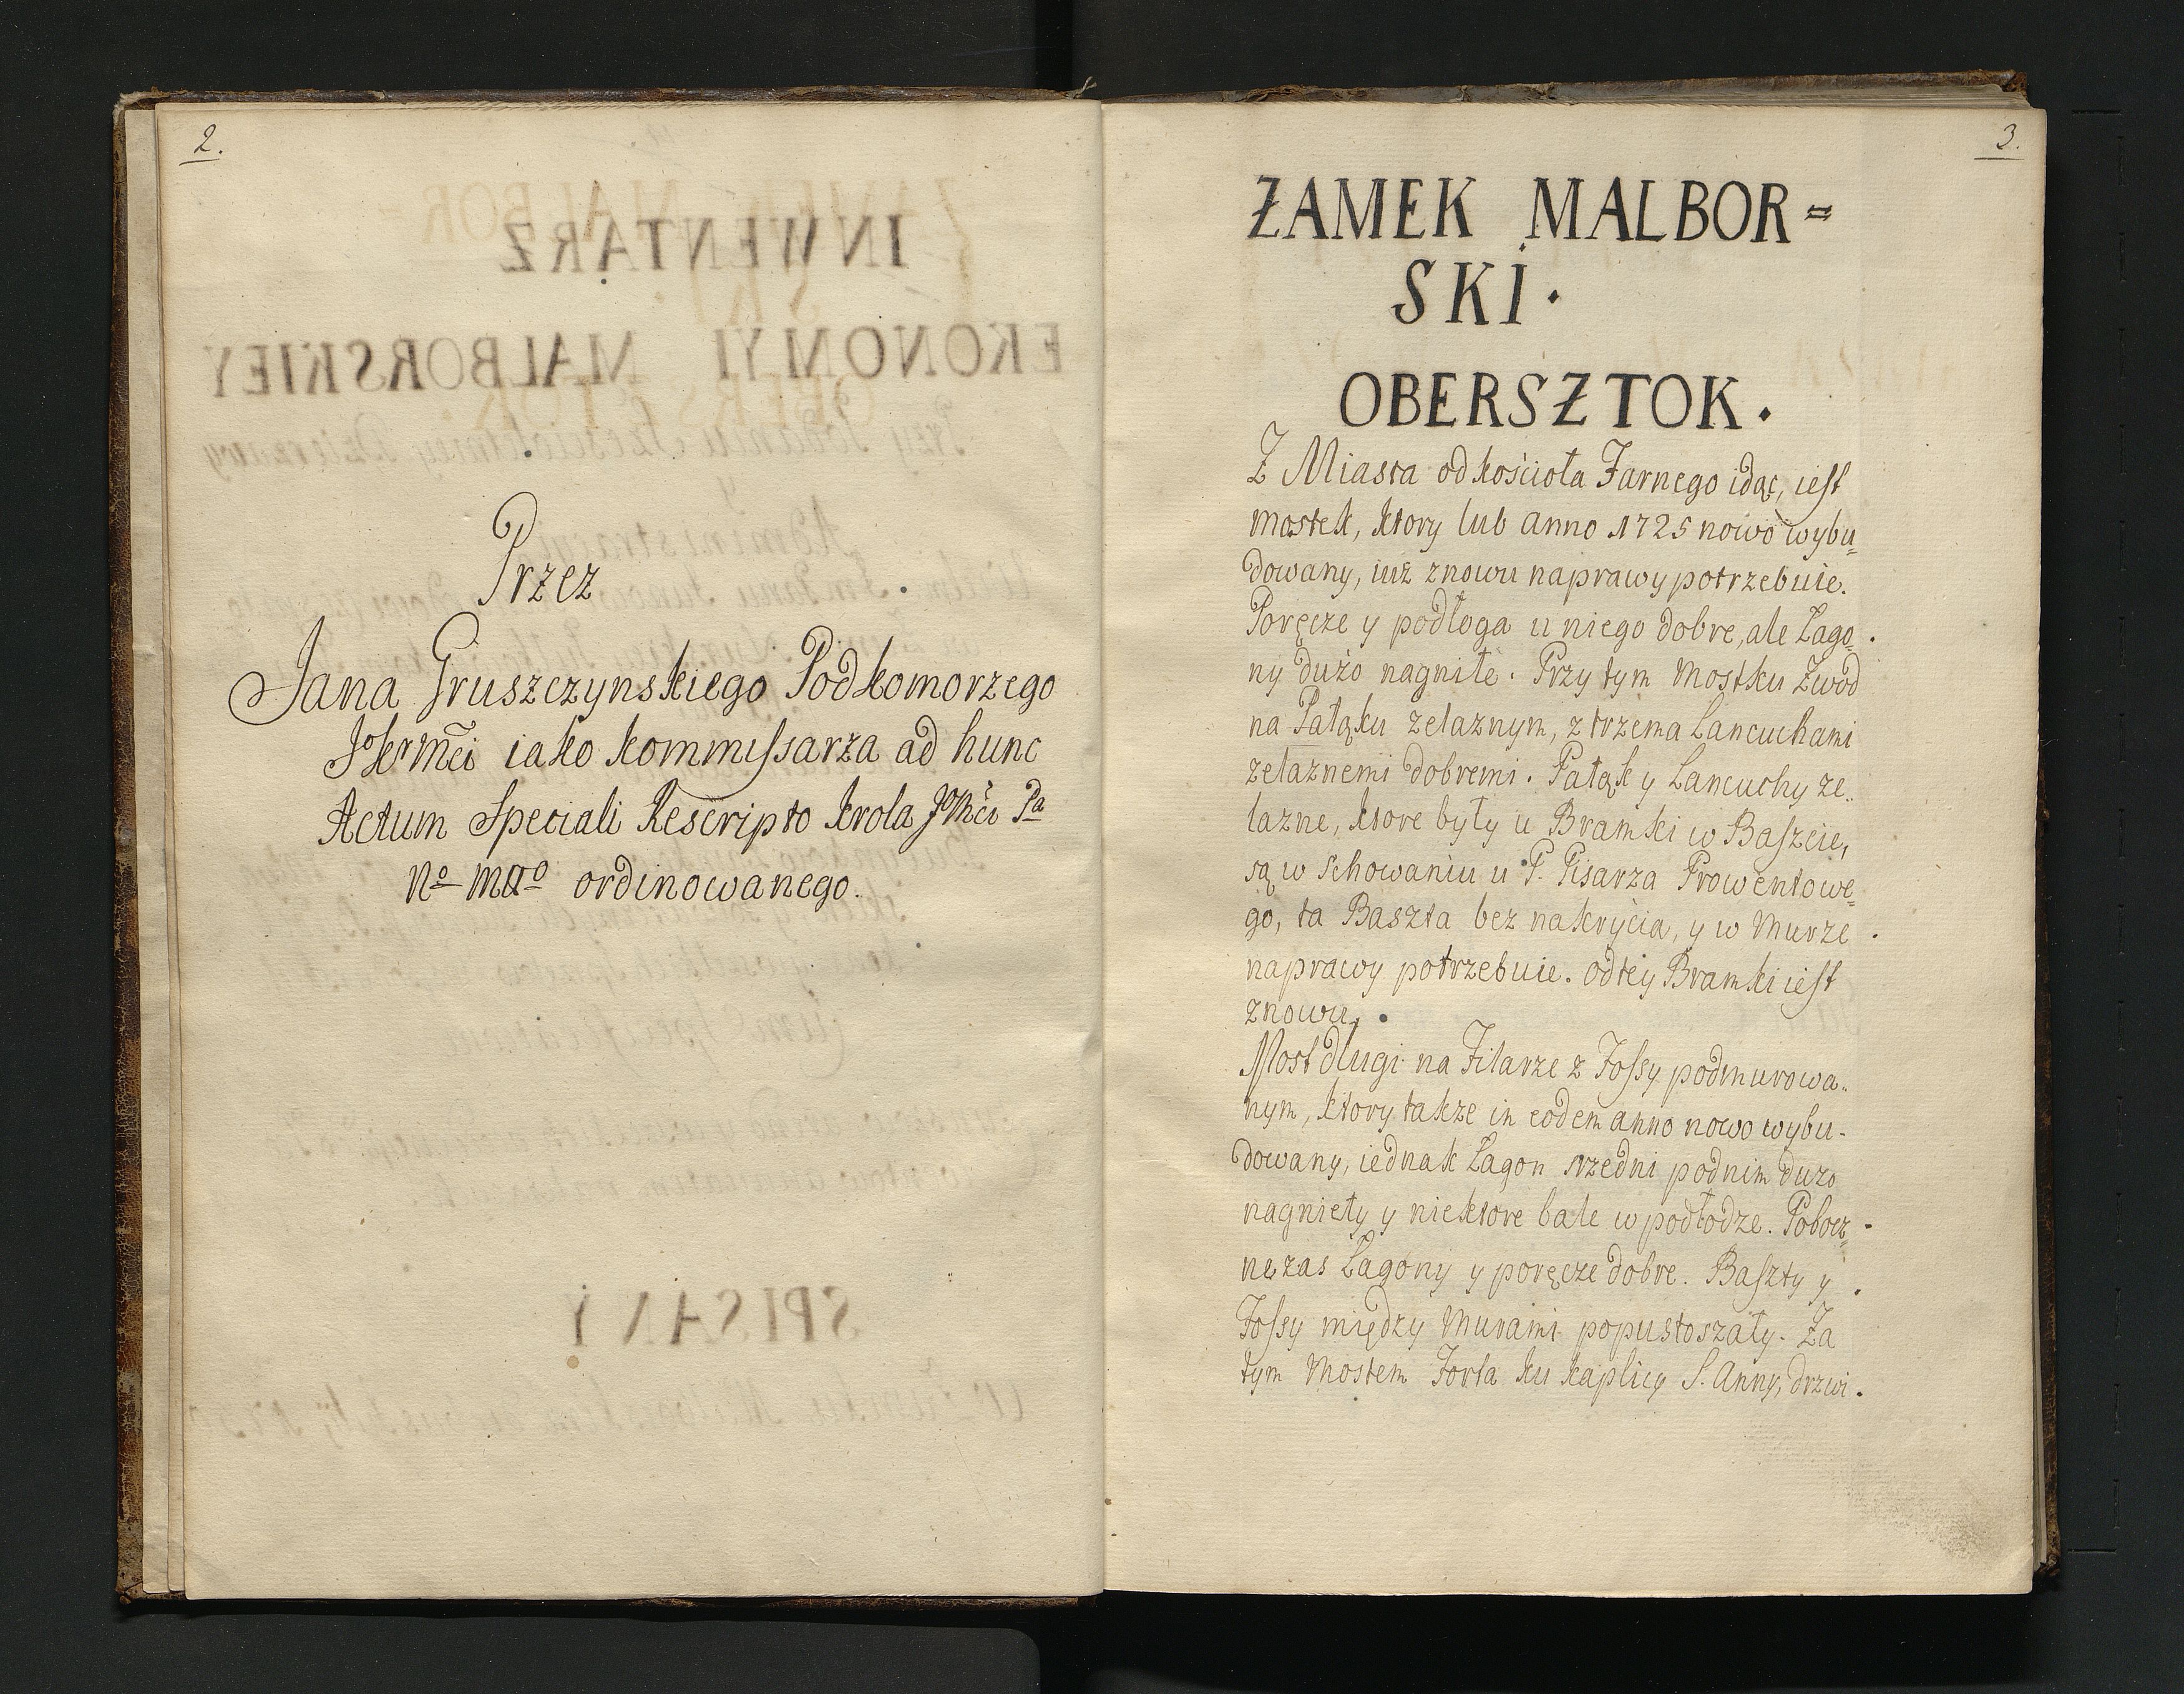 2.
Przez
Jana Gruszczynskiego Podkomorzego
JoKrMći iako Kommissarza ad hunc
Actum Speciali Rescripto Krola JoMći Pa
no mgo ordinowanego.
3.
ZAMEK MALBOR=
SKI.
OBERSZTOK.
Z Miasta od kościoła Farnego idąc, iest
mostek, ktory lub anno 1725 nowo wybu=
dowany, iuż znowu naprawy potrzebuie.
Poręcze y podłoga u niego dobre, ale Łago
ny dużo nagniłe. Przy tym mostku Zwod
na Pałąku zelaznym, z trzema Lancuchami
zelaznemi dobremi. Pałąk y Lancuchy ze
lazne, ktore były u Bramki w Baszcie,
są w schowaniu u P. Pisarza Prowentowe=
go, ta Baszta bez nakrycia, y w Murze
naprawy potrzebuie. od tey Bramki iest
znowu.
Most długi na Filarze z Fossy podmurowa
nym, ktory takze in eodem anno nowo wybu-
dowany, iednak Łagon srzedni pod nim duzo
nagniety y niektore bale w podłodze. Pobocz=
ne zas Łagony y poręcze dobre. Baszty y
Fossy między Murami popustoszały. Za
tym Mostem Forta ku kaplicy S. Anny, drzwi